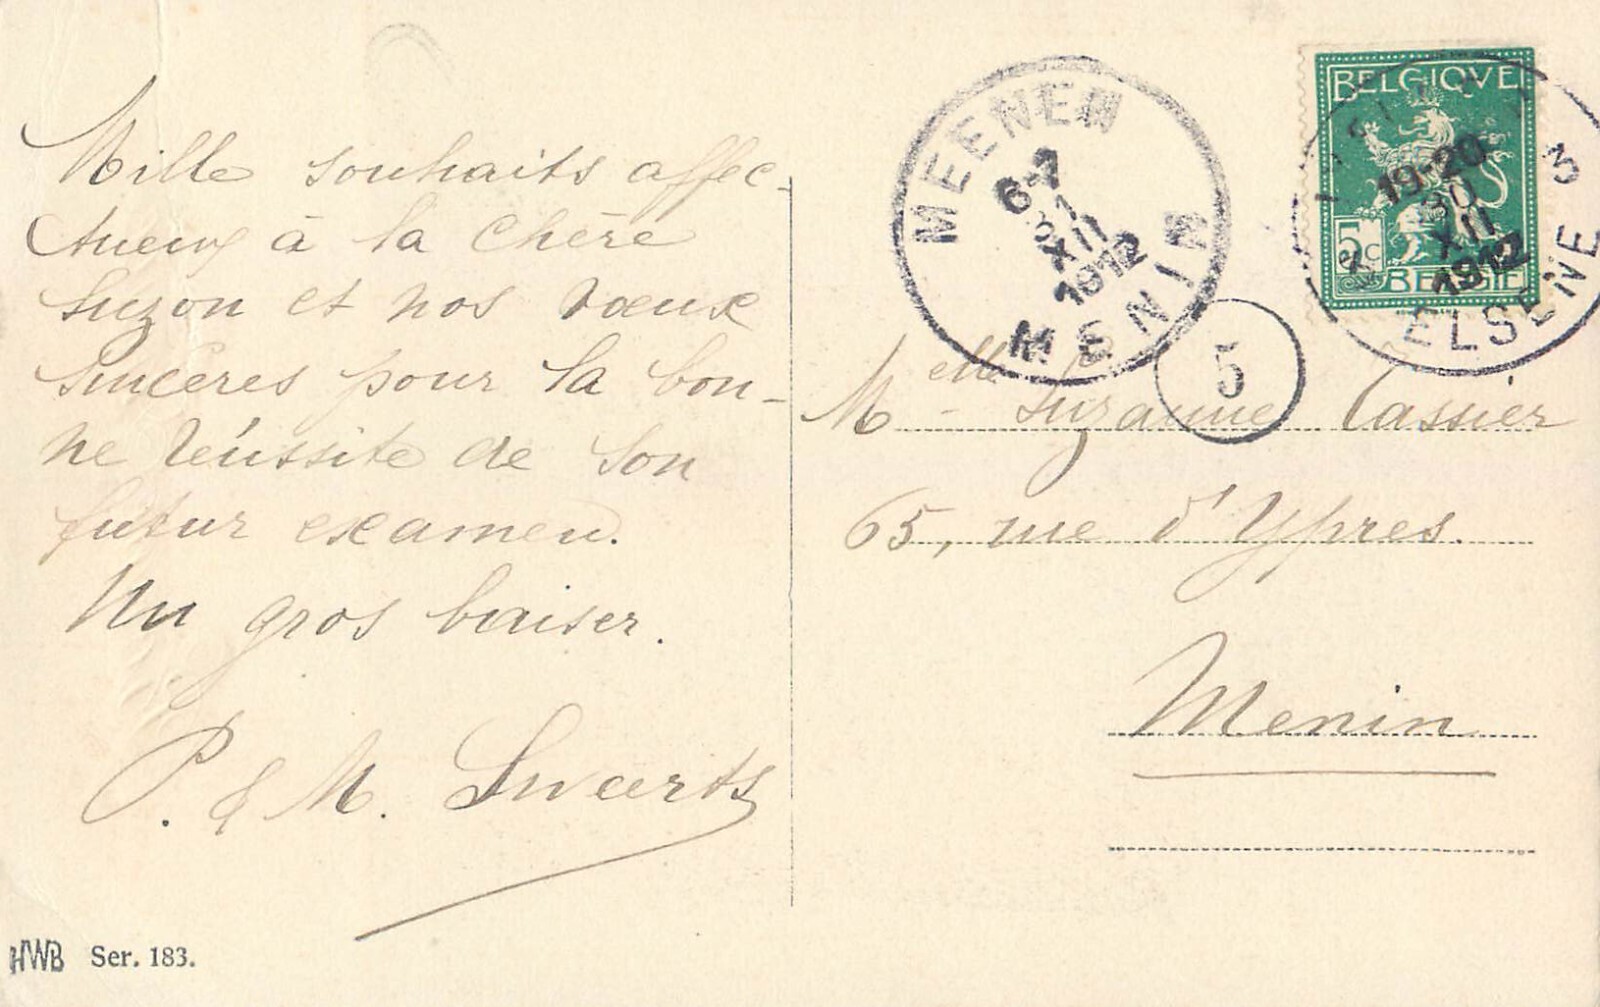 Mille souhaits affec-
tueux à la chère
Suzon et nos vœux
sincères pour la bon-
ne réussite de son
futur examen.
Un gros baiser.
P. & M. Sweerts
HWB Ser. 183.
MEENEN
6-7
31
XII
1912
MENIN
BELGIQUE
5c
BELGIË
3
19-20
30
XII
1912
ELSENE
5
Melle Suzanne Tassier
65, rue d'Ypres.
Menin